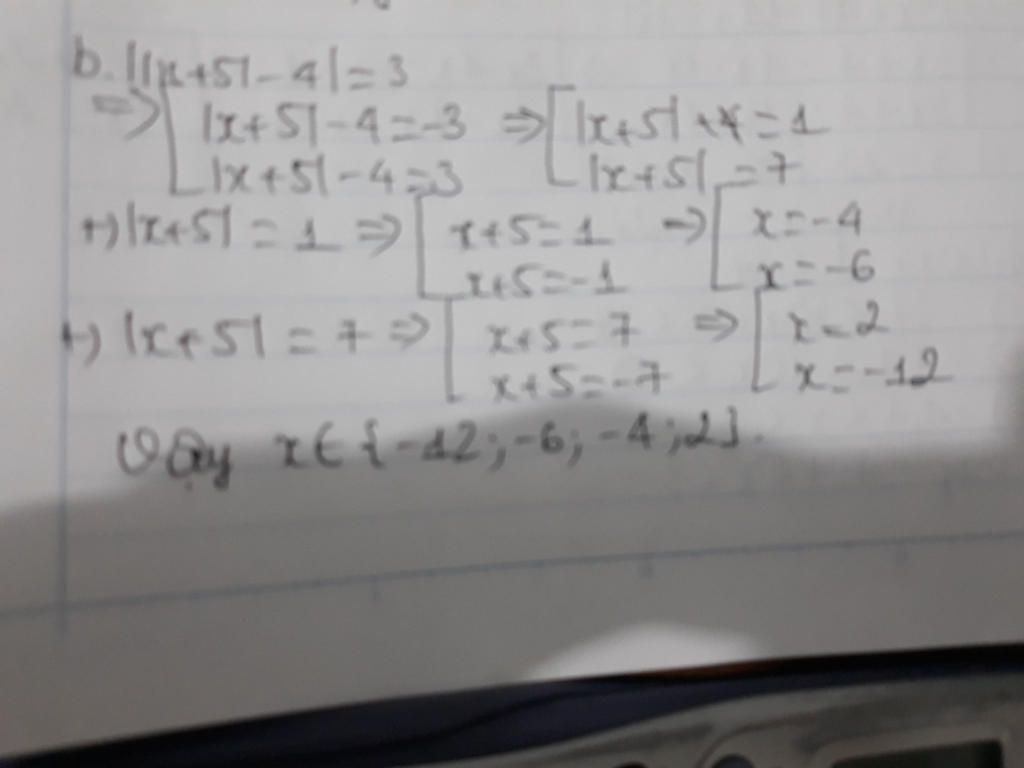 b. ||x+5|-4|=3
=> [ |x+5|-4=-3 => [ |x+5| +4=1
|x+5|-4=3 |x+5| =7
+) |x+5| = 1 => [ x+5=1 => [ x=-4
x+5=-1 x=-6
+) |x+5| = 7 => [ x+5=7 => [ x=2
x+5=-7 x=-12
Vậy x∈{-12;-6;-4;2}.